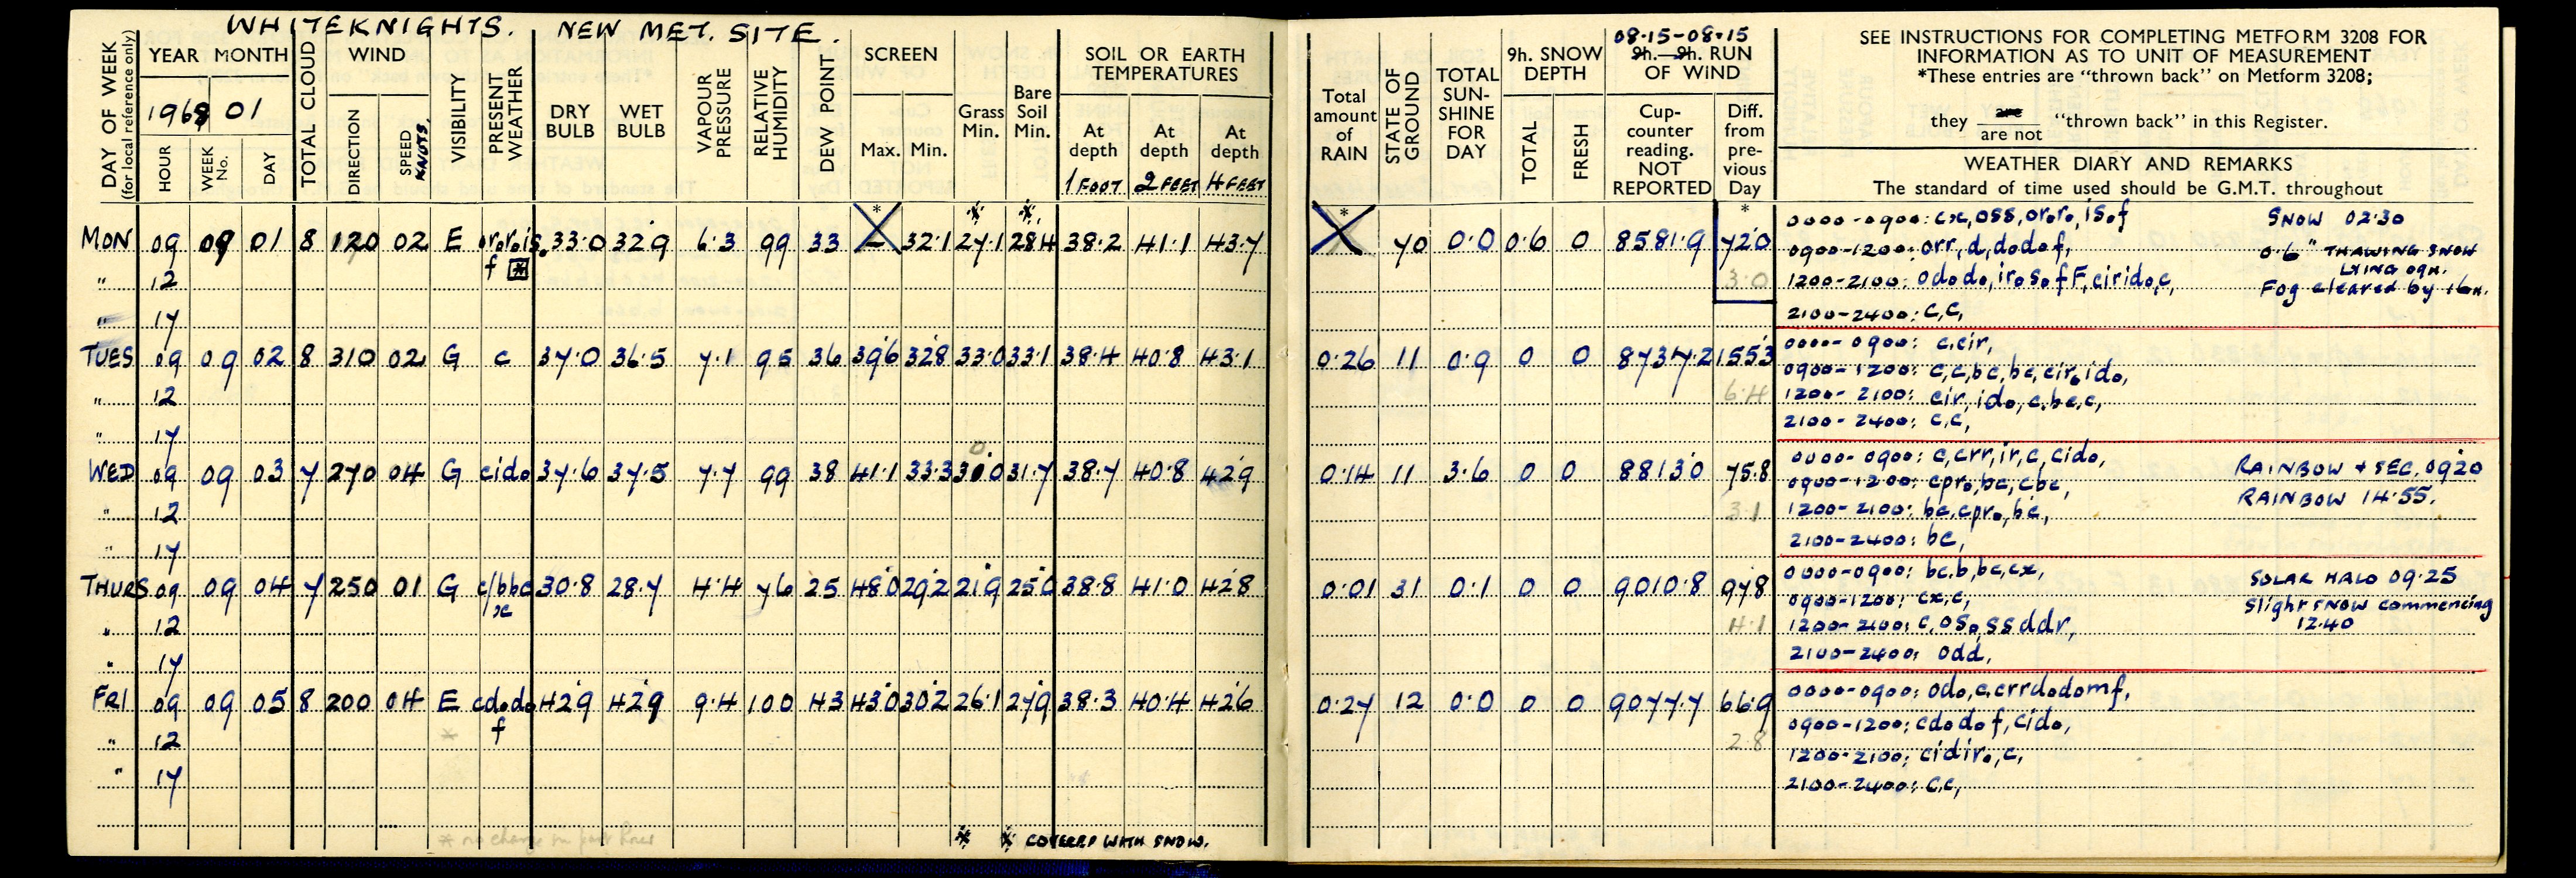 WHITEKNIGHTS. NEW MET. SITE.
DAY OF WEEK (for local reference only)
YEAR MONTH
1968 01
HOUR
WEEK No.
DAY
TOTAL CLOUD
WIND
DIRECTION
SPEED KNOTS.
VISIBILITY
PRESENT WEATHER
DRY BULB
WET BULB
VAPOUR PRESSURE
RELATIVE HUMIDITY
DEW POINT
SCREEN
Max. Min.
Grass Min.
Bare Soil Min.
SOIL OR EARTH TEMPERATURES
At depth 1 FOOT
At depth 2 FEET
At depth 4 FEET
Total amount of RAIN
STATE OF GROUND
TOTAL SUN-SHINE FOR DAY
9h. SNOW DEPTH
TOTAL
FRESH
08·15-08·15
9h.—9h. RUN OF WIND
Cup-counter reading. NOT REPORTED
Diff. from pre-vious Day
SEE INSTRUCTIONS FOR COMPLETING METFORM 3208 FOR
INFORMATION AS TO UNIT OF MEASUREMENT
*These entries are “thrown back” on Metform 3208;
they are / are not “thrown back” in this Register.
WEATHER DIARY AND REMARKS
The standard of time used should be G.M.T. throughout
* * * * *
MON 09 09 01 8 120 02 E ororois. f 33·0 32·9 6·3 99 33 32·1 27·1 28·4 38·2 41·1 43·7 70 0·0 0·6 0 8581·9 72·0
" 12 3·0
" 17
0000-0900: cx,oss,oror.,is.f SNOW 02·30
0900-1200: orr,d,dodof, 0·6" THAWING SNOW
LYING 09h.
1200-2100: ododo,iro so fF,cirido,c, Fog cleared by 16h.
2100-2400: c,c,
TUES 09 09 02 8 310 02 G c 37·0 36·5 7·1 95 36 39·6 32·8 33·0 33·1 38·4 40·8 43·1 0·26 11 0·9 0 0 8737·2 155·3
" 12 6·4
" 17
0000-0900: c,cir,
0900-1200: c,c,bc,bc,ciro,ido,
1200-2100: cir,ido,c,bc,c,
2100-2400: c,c,
WED 09 09 03 7 270 04 G cido 37·6 37·5 7·7 99 38 41·1 33·3 31·7 38·7 40·8 42·9 0·14 11 3·6 0 0 8813·0 75·8
" 12 3·1
" 17
0000-0900: c,crr,ir,c,cido, RAINBOW + SEC. 0920
0900-1200: cpro,bc,cbc, RAINBOW 14·55.
1200-2100: bc,cpro,bc,
2100-2400: bc,
THURS 09 09 04 7 250 01 G c/bbc x 30·8 28·7 4·4 76 25 48·0 29·2 21·9 25·0 38·8 41·0 42·8 0·01 31 0·1 0 0 9010·8 97·8
" 12 4·1
" 17
0000-0900: bc,b,bc,cx, SOLAR HALO 09·25
0900-1200: cx,c, Slight SNOW commencing
1200-2100: c,oso,ssddr, 12·40
2100-2400: odd,
FRI 09 09 05 8 200 04 E cdodo f 42·9 42·9 9·4 100 43 43·0 30·2 26·1 27·9 38·3 40·4 42·6 0·27 12 0·0 0 0 9077·7 66·9
" 12 * 2·8
" 17
0000-0900: odo,c,crrdodomf,
0900-1200: cdodof,cido,
1200-2100: cidiro,c,
2100-2400: c,c,
* no change in
* * COVERED WITH SNOW.